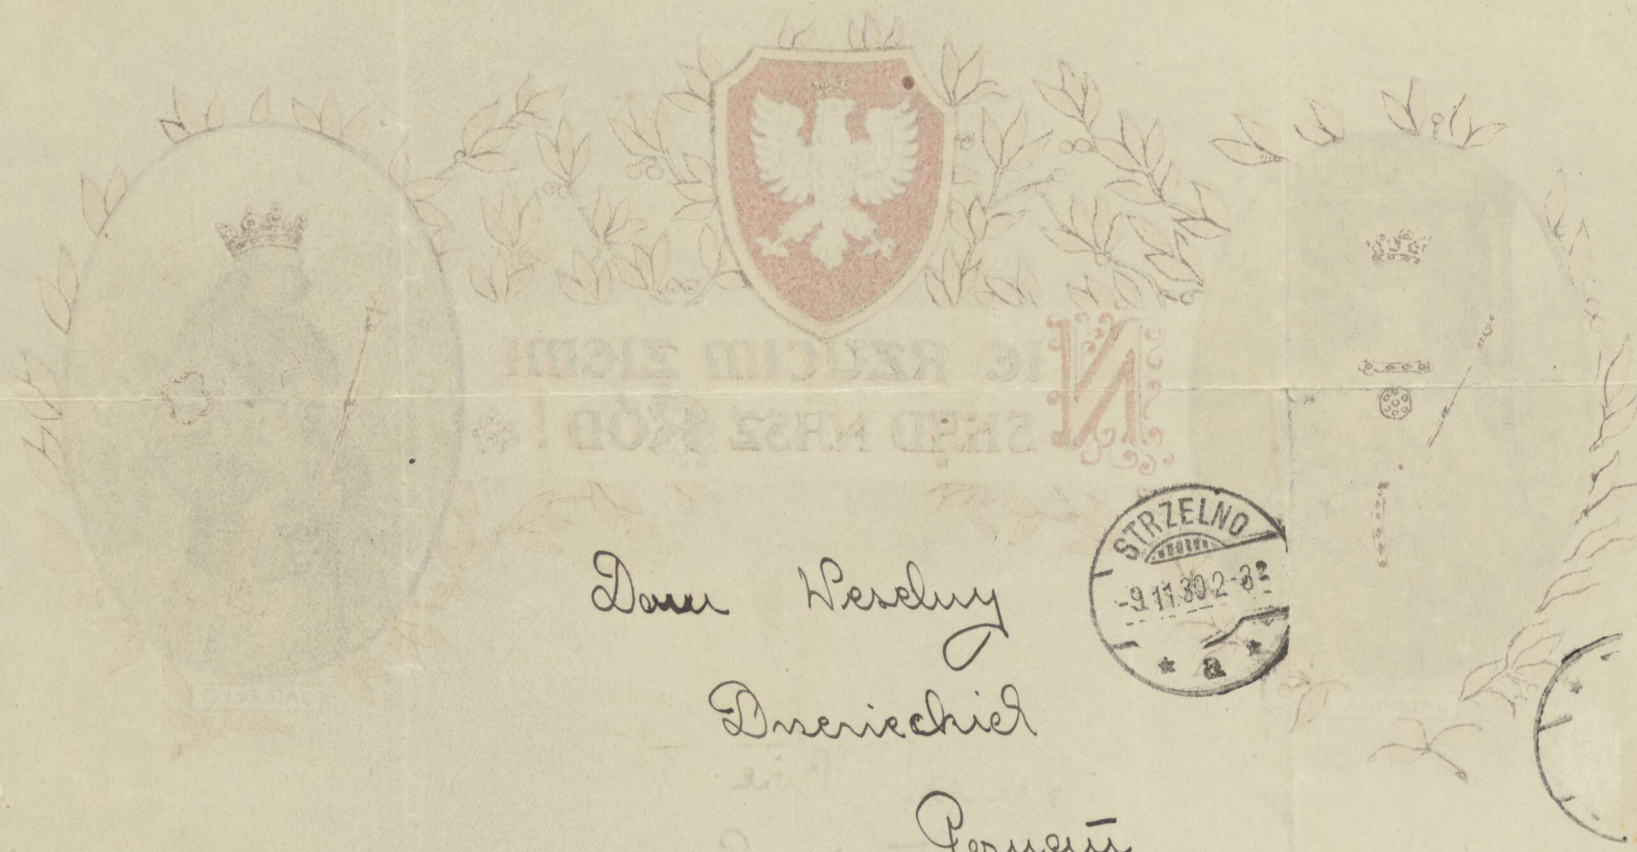 NIE RZUCIM ZIEMI
SKĄD NASZ RÓD!
STRZELNO
-9.11.30.2-3
* a *
Dom Weselny
Poznań